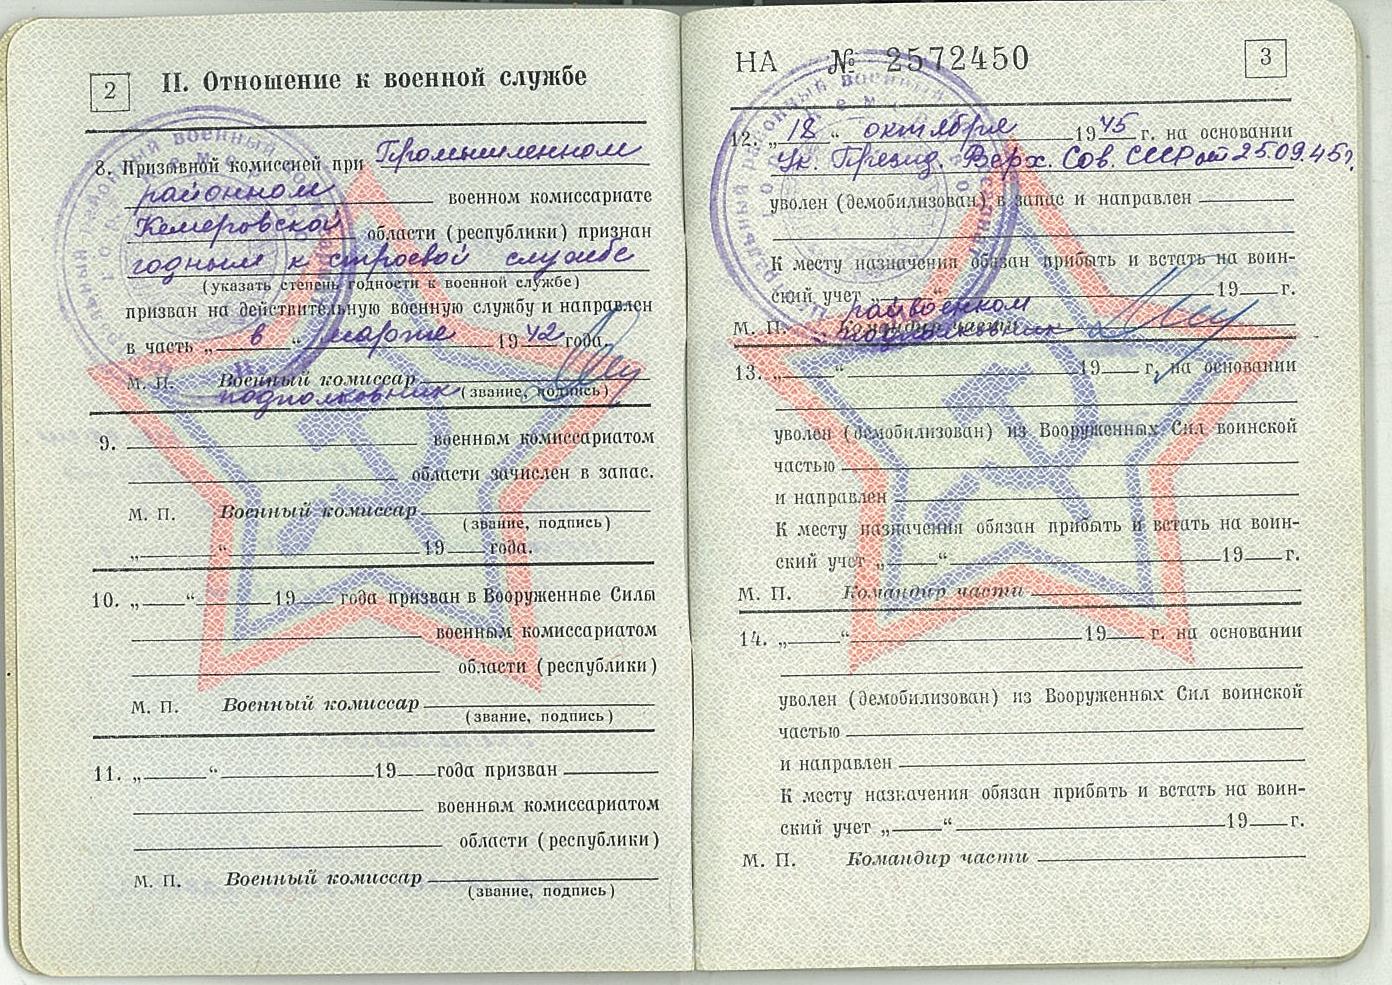 2
II. Отношение к военной службе
8. Призывной комиссией при Промышленном
районном военном комиссариате
Кемеровской области (республики) признан
годным к строевой службе
(указать степень годности к военной службе)
призван на действительную военную службу и направлен
в часть „ в “ марте 1942 года.
М. П. Военный комиссар
подполковник (звание, подпись)
9. военным комиссариатом
области зачислен в запас.
М. П. Военный комиссар
(звание, подпись)
„ “ 19 года.
10. „ “ 19 года призван в Вооруженные Силы
военным комиссариатом
области (республики)
М. П. Военный комиссар
(звание, подпись)
11. „ “ 19 года призван
военным комиссариатом
области (республики)
М. П. Военный комиссар
(звание, подпись)
НА № 2572450
3
12. „ 18 “ октября 1945 г. на основании
Ук. Презид. Верх. Сов. СССР от 25.09.45г.
уволен (демобилизован) в запас и направлен
К месту назначения обязан прибыть и встать на воин-
ский учет „ “ 19 г.
райвоенком
М. П. Командир части
13. „ “ 19 г. на основании
уволен (демобилизован) из Вооруженных Сил воинской
частью
и направлен
К месту назначения обязан прибыть и встать на воин-
ский учет „ “ 19 г.
М. П. Командир части
14. „ “ 19 г. на основании
уволен (демобилизован) из Вооруженных Сил воинской
частью
и направлен
К месту назначения обязан прибыть и встать на воин-
ский учет „ “ 19 г.
М. П. Командир части